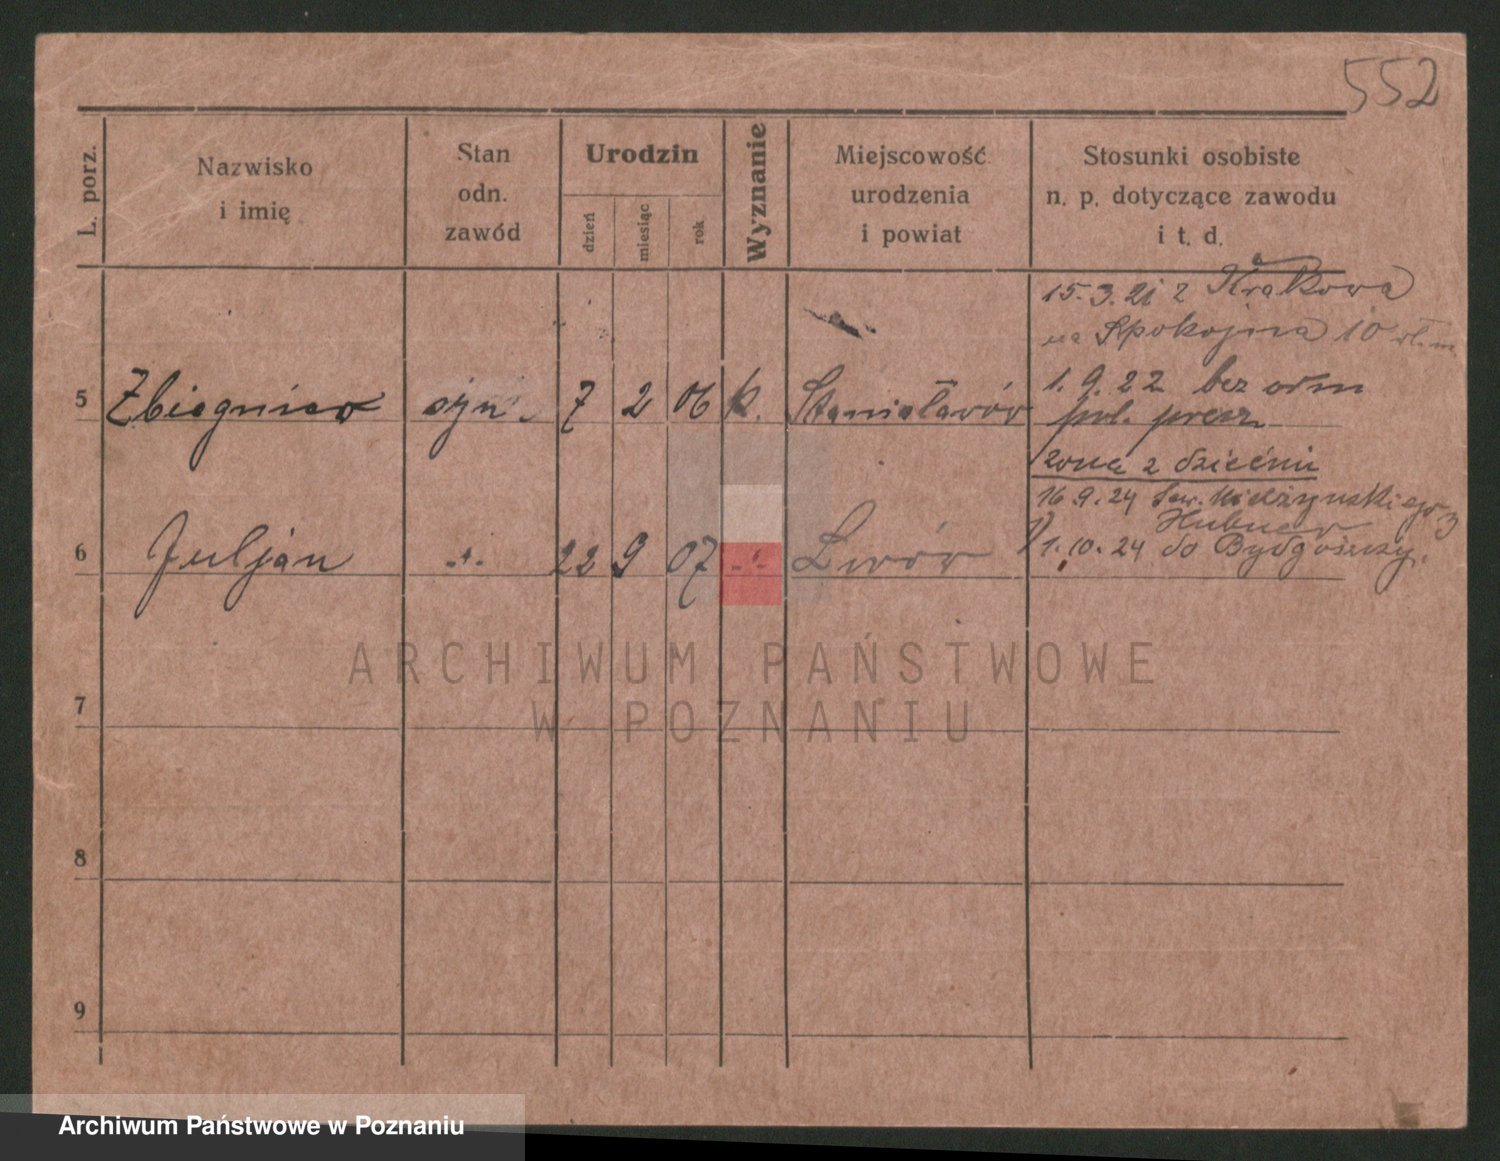 552
L. porz.
Nazwisko
i imię
Stan
odn.
zawód
Urodzin
dzień
miesiąc
rok
Wyznanie
Miejscowość
urodzenia
i powiat
Stosunki osobiste
n. p. dotyczące zawodu
i t. d.
15.3.21 z Krakowa
na Spokojna 10
5 Zbiegniew syn 7 2 06 k. Stanisławów
1.9.22 bez orm
pol. przez
żona z dziećmi
16.9.24
Hubner
6 Juljan -"- 22 9 07 -"- Lwów
1.10.24 do Bydgoszczy.
7
8
9
ARCHIWUM PAŃSTWOWE
W POZNANIU
Archiwum Państwowe w Poznaniu